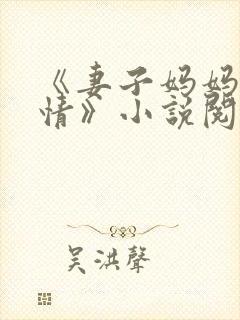 《妻子妈妈
情》小說閱
吴洪聲